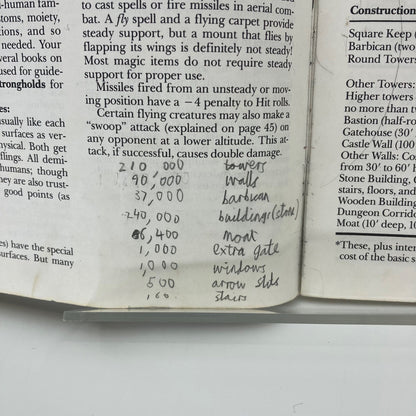 -human fam-
toms, moiety,
tions, and so
needed. Your
veral books on
used for guide-
trongholds for
es:
usually like each
surfaces as ver-
physical. Both get
flings. All demi-
humans; though
hey are also trust-
good points (as
es) have the special
surfaces. But many
to cast spells or fire missiles in aerial com-
bat. A fly spell and a flying carpet provide
steady support, but a mount that flies by
flapping its wings is definitely not steady!
Most magic items do not require steady
support for proper use.
Missiles fired from an unsteady or mov-
ing position have a −4 penalty to Hit rolls.
Certain flying creatures may also make a
"swoop" attack (explained on page 45) on
any opponent at a lower altitude. This at-
tack, if successful, causes double damage.
210,000 towers
90,000 walls
37,000 barbican
240,000 buildings (stone)
6,400 moat
1,000 extra gate
1,000 windows
500 arrow slits
160 stairs
Construction
Square Keep
Barbican (two
Round Towers
Other Towers:
Higher towers
no more than tw
Bastion (half-ro
Gatehouse (30′
Castle Wall (100
Other Walls: Cos
from 30′ to 60′ h
Stone Building, C
stairs, floors, and
Wooden Building
Dungeon Corrido
Moat (10′ deep, 10
*These, plus inter
cost of the basic s